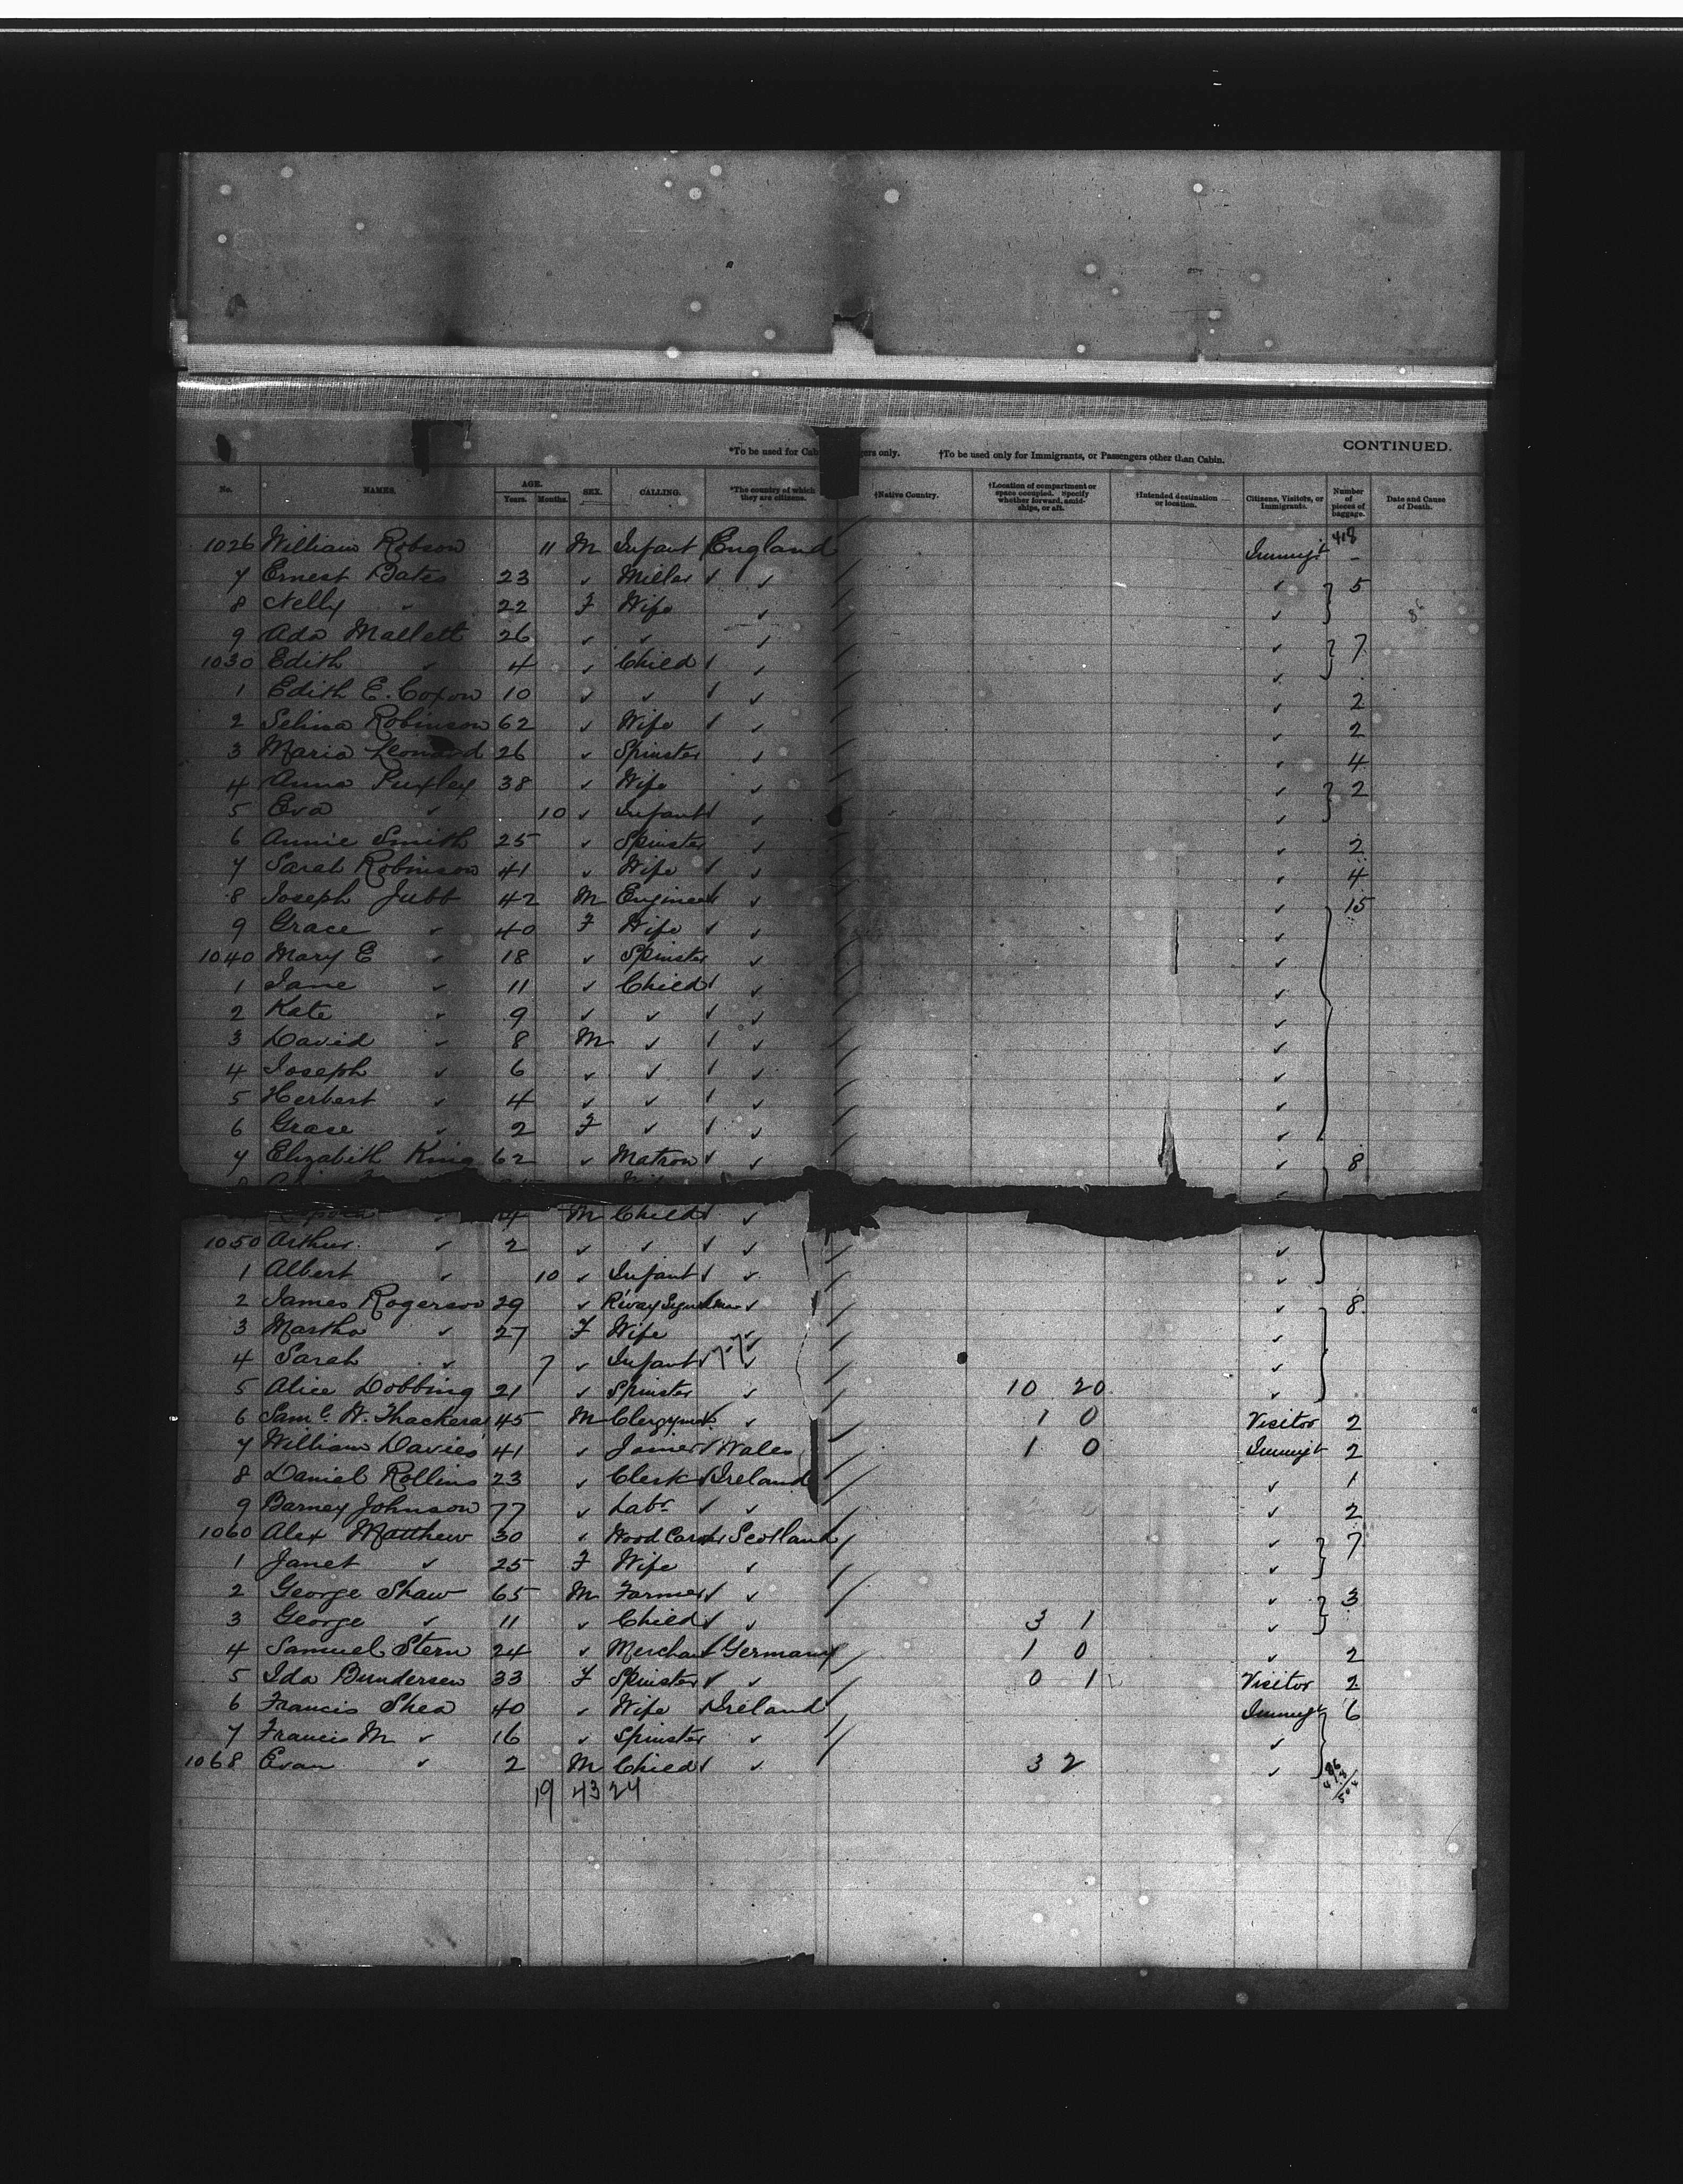 CONTINUED.
*To be used for Cab gers only. †To be used only for Immigrants, or Passengers other than Cabin.
No. NAMES. AGE. Years. Months. SEX. CALLING. *The country of which they are citizens. †Native Country. †Location of compartment or space occupied. Specify whether forward, amidships, or aft. †Intended destination or location. Citizens, Visitors, or Immigrants. Number of pieces of baggage. Date and Cause of Death.
418
1026 William Robson 11 M Infant England Immigt –
7 Ernest Bates 23 ✓ Miller ✓ ✓ ✓ 5
8 Nelly ✓ 22 F Wife ✓ ✓
9 Ada Mallett 26 ✓ ✓ ✓ ✓ 7
1030 Edith ✓ 4 ✓ Child ✓ ✓ ✓
1 Edith E. Coxon 10 ✓ ✓ ✓ ✓ ✓ 2
2 Selina Robinson 62 ✓ Wife ✓ ✓ ✓ 2
3 Maria Leonard 26 ✓ Spinster ✓ ✓ 4
4 Anna Puxley 38 ✓ Wife ✓ ✓ 2
5 Eva ✓ 10 ✓ Infant ✓ ✓ ✓
6 Annie Smith 25 ✓ Spinster ✓ ✓ 2
7 Sarah Robinson 41 ✓ Wife ✓ ✓ ✓ 4
8 Joseph Jubb 42 M Engineer ✓ ✓ ✓ 15
9 Grace ✓ 40 F Wife ✓ ✓ ✓
1040 Mary E ✓ 18 ✓ Spinster ✓ ✓
1 Jane ✓ 11 ✓ Child ✓ ✓ ✓
2 Kate ✓ 9 ✓ ✓ ✓ ✓ ✓
3 David ✓ 8 M ✓ ✓ ✓ ✓
4 Joseph ✓ 6 ✓ ✓ ✓ ✓ ✓
5 Herbert ✓ 4 ✓ ✓ ✓ ✓ ✓
6 Grace ✓ 2 F ✓ ✓ ✓ ✓
7 Elizabeth King 62 ✓ Matron ✓ ✓ ✓ 8
✓ 4 M Child ✓ ✓
1050 Arthur ✓ 2 ✓ ✓ ✓ ✓ ✓
1 Albert ✓ 10 ✓ Infant ✓ ✓ ✓
2 James Rogerson 29 ✓ ✓ ✓ 8
3 Martha ✓ 27 F Wife ✓ ✓
4 Sarah ✓ 7 ✓ Infant ✓ ✓ ✓
5 Alice Dobbing 21 ✓ Spinster ✓ 10 20 ✓
6 Saml. W. Thackeray 45 M Clergyman ✓ ✓ 1 0 Visitor 2
7 William Davies 41 ✓ Joiner ✓ Wales 1 0 Immigt 2
8 Daniel Rollins 23 ✓ Clerk ✓ Ireland ✓ 1
9 Barney Johnson 77 ✓ Labr ✓ ✓ ✓ 2
1060 Alex Matthew 30 ✓ Wood Carver Scotland ✓ 7
1 Janet ✓ 25 F Wife ✓ ✓
2 George Shaw 65 M Farmer ✓ ✓ ✓ 3
3 George ✓ 11 ✓ Child ✓ ✓ 3 1 ✓
4 Samuel Stern 24 ✓ Merchant Germany 1 0 ✓ 2
5 Ida Bundersen 33 F Spinster ✓ ✓ 0 1 Visitor 2
6 Francis Shea 40 ✓ Wife Ireland Immigt 6
7 Francis M ✓ 16 ✓ Spinster ✓ ✓
1068 Evan ✓ 2 M Child ✓ ✓ 3 2 ✓
19 43 24
86
418
504